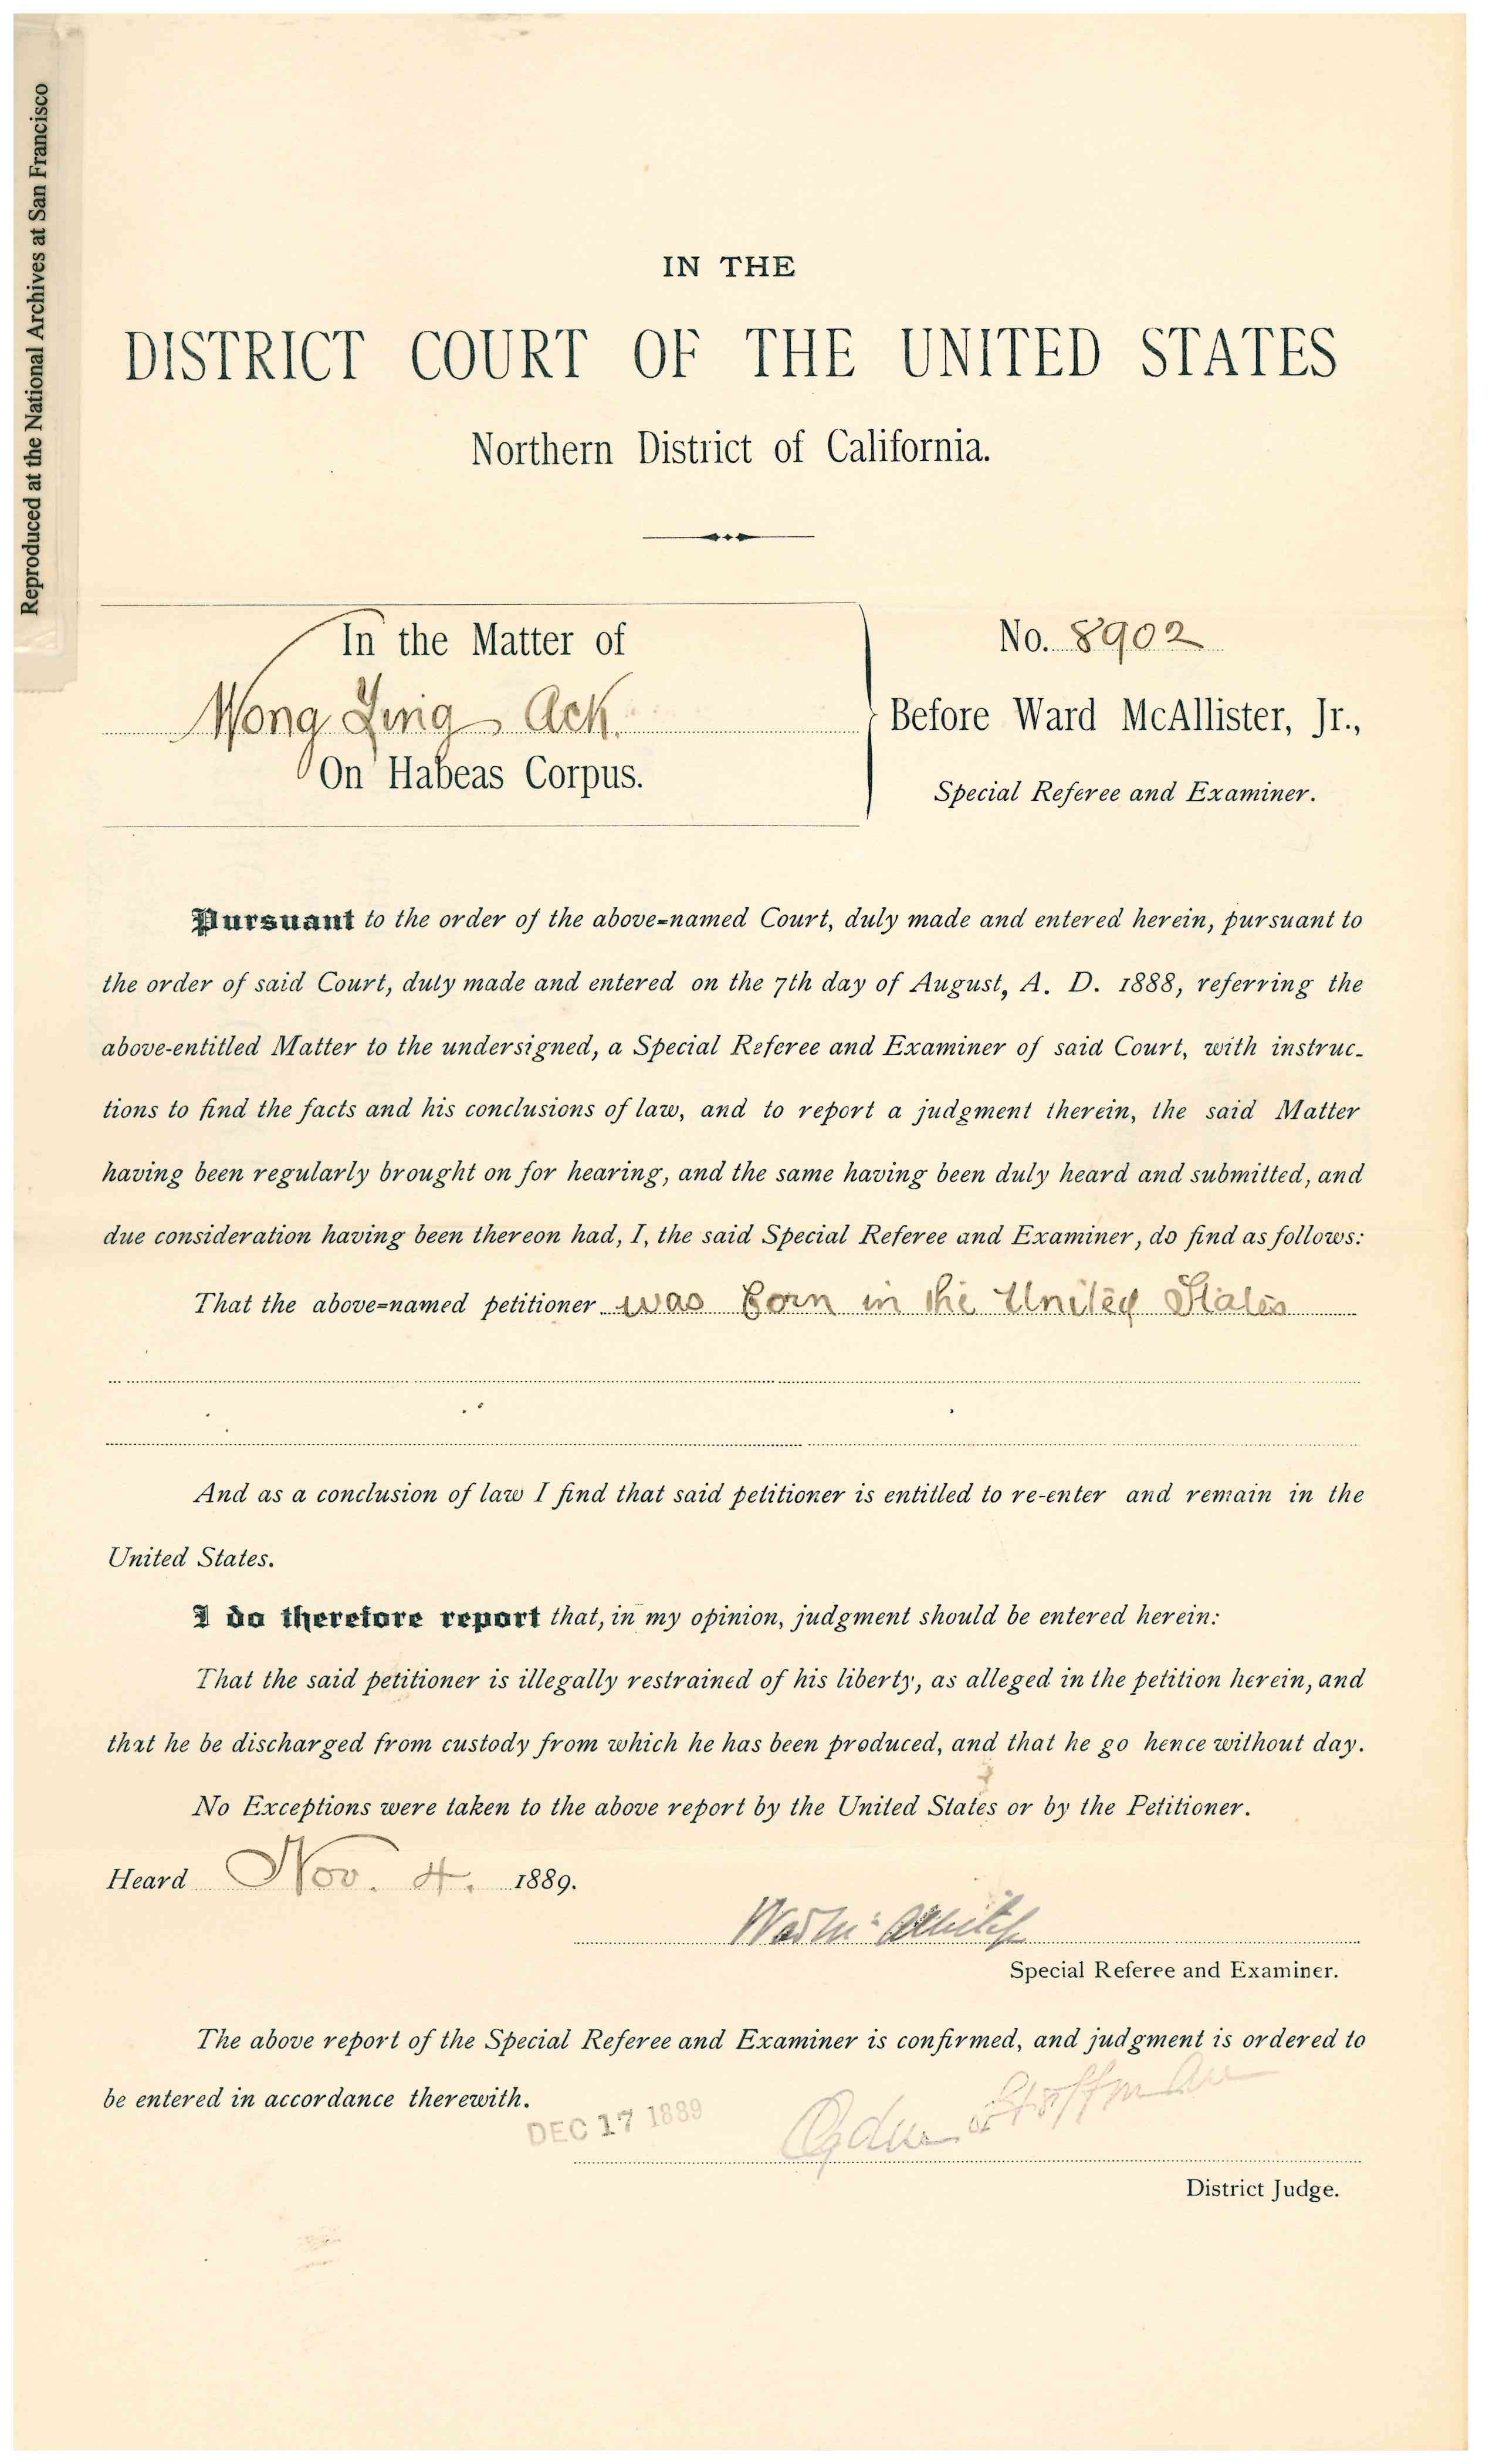 Reproduced at the National Archives at San Francisco
IN THE
DISTRICT COURT OF THE UNITED STATES
Northern District of California.
In the Matter of
Wong Ying Ack.
On Habeas Corpus.
No. 8902
Before Ward McAllister, Jr.,
Special Referee and Examiner.
Pursuant to the order of the above-named Court, duly made and entered herein, pursuant to
the order of said Court, duly made and entered on the 7th day of August, A. D. 1888, referring the
above-entitled Matter to the undersigned, a Special Referee and Examiner of said Court, with instruc-
tions to find the facts and his conclusions of law, and to report a judgment therein, the said Matter
having been regularly brought on for hearing, and the same having been duly heard and submitted, and
due consideration having been thereon had, I, the said Special Referee and Examiner, do find as follows:
That the above-named petitioner was born in the United States
And as a conclusion of law I find that said petitioner is entitled to re-enter and remain in the
United States.
I do therefore report that, in my opinion, judgment should be entered herein:
That the said petitioner is illegally restrained of his liberty, as alleged in the petition herein, and
that he be discharged from custody from which he has been produced, and that he go hence without day.
No Exceptions were taken to the above report by the United States or by the Petitioner.
Heard Nov. 4. 1889.
Special Referee and Examiner.
The above report of the Special Referee and Examiner is confirmed, and judgment is ordered to
be entered in accordance therewith.
DEC 17 1889
Ogden Hoffman
District Judge.